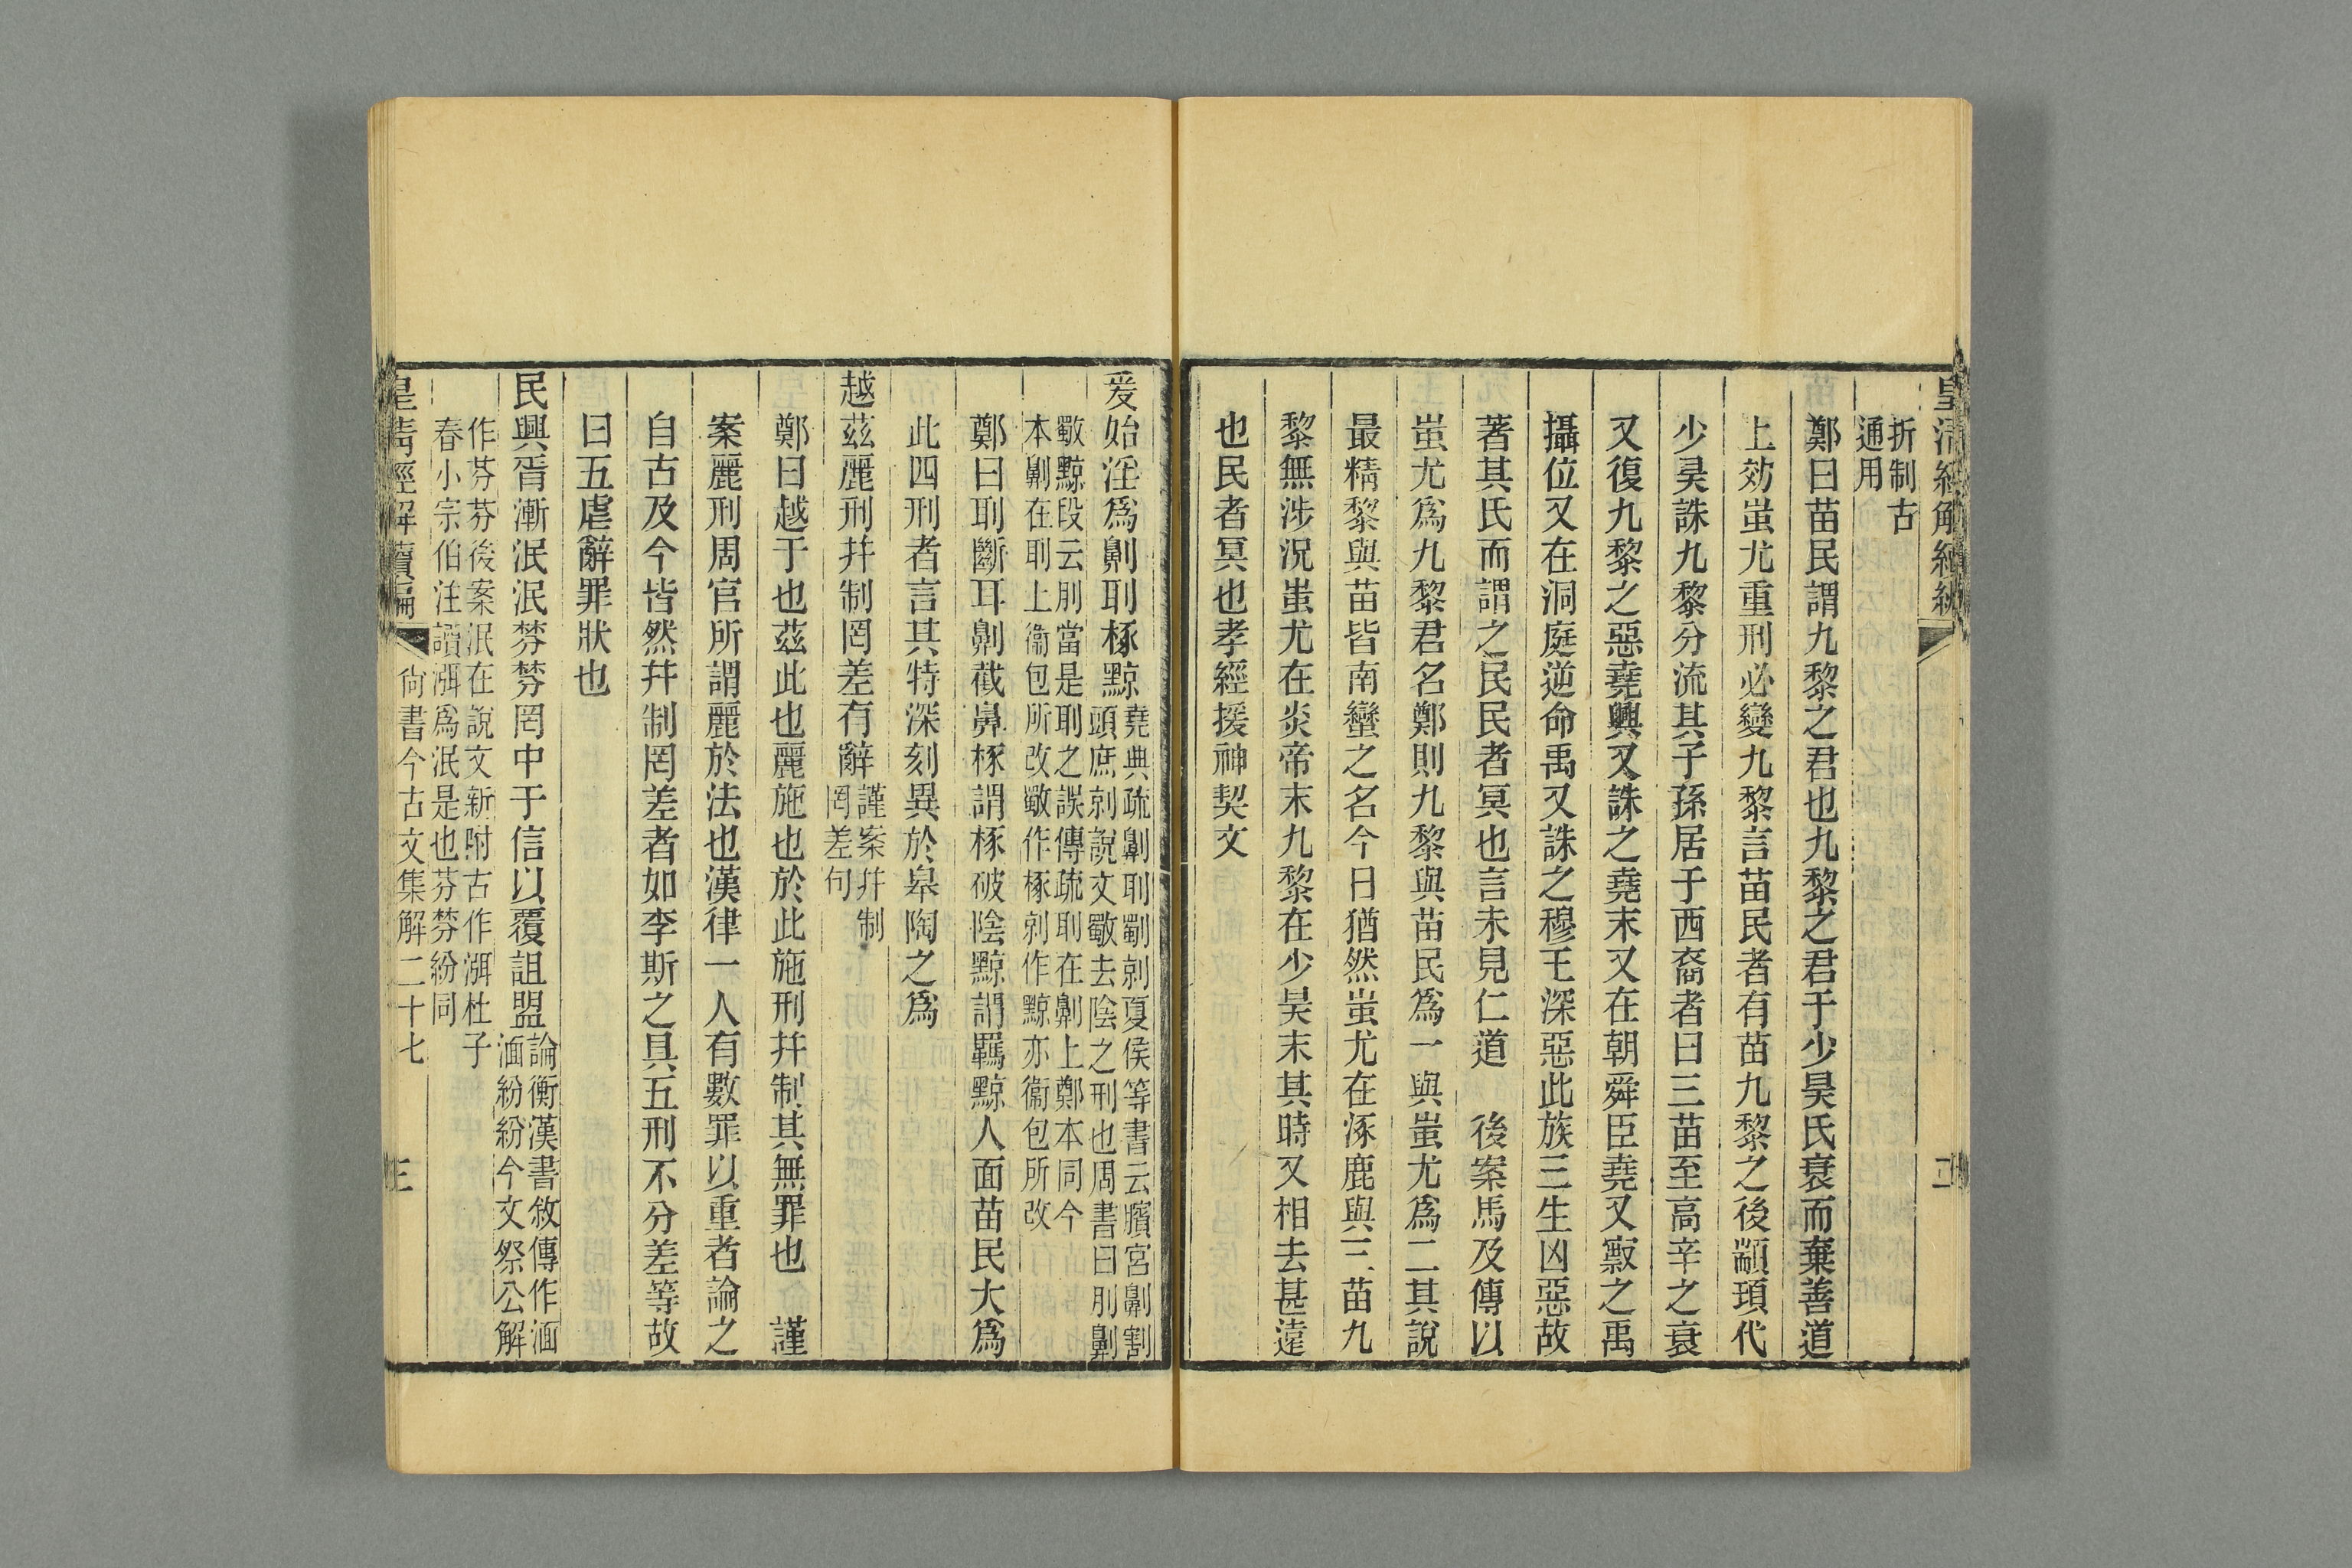 皇清經解續編
二
折制古
通用
鄭曰苗民謂九黎之君也九黎之君于少昊氏衰而棄善道
上效蚩尤重刑必變九黎言苗民者有苗九黎之後顓頊代
少昊誅九黎分流其子孫居于西裔者曰三苗至高辛之衰
又復九黎之惡堯興又誅之堯末又在朝舜臣堯又竄之禹
攝位又在洞庭逆命禹又誅之穆王深惡此族三生凶惡故
著其氏而謂之民民者冥也言未見仁道　後案馬及傳以
蚩尤爲九黎君名鄭則九黎與苗民爲一與蚩尤爲二其說
最精黎與苗皆南蠻之名今日猶然蚩尤在涿鹿與三苗九
黎無涉況蚩尤在炎帝末九黎在少昊末其時又相去甚遠
也民者冥也孝經援神契文
爰始淫爲劓刵椓黥堯典疏劓刵劅剠夏侯等書云臏宮劓割
頭庶剠說文斀去陰之刑也周書曰刖劓
斀黥段云刖當是刵之誤傳疏刵在劓上鄭本同今
本劓在刵上衞包所改斀作椓剠作黥亦衞包所改
鄭曰刵斷耳劓截鼻椓謂椓破陰黥謂羈黥人面苗民大爲
此四刑者言其特深刻異於皋陶之爲
越茲麗刑幷制罔差有辭謹案幷制
罔差句
鄭曰越于也茲此也麗施也於此施刑幷制其無罪也　謹
案麗刑周官所謂麗於法也漢律一人有數罪以重者論之
自古及今皆然幷制罔差者如李斯之具五刑不分差等故
曰五虐辭罪狀也
民興胥漸泯泯棼棼罔中于信以覆詛盟論衡漢書敘傳作湎
湎紛紛今文祭公解
作芬芬後案泯在說文新附古作湣杜子
春小宗伯注讀湣爲泯是也芬棼紛同
皇清經解續編
尙書今古文集解二十七
三